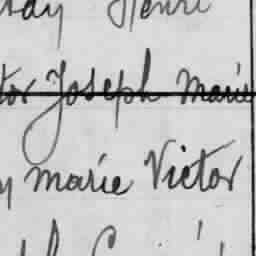 Henri
tor Joseph Marie
y Marie Victor